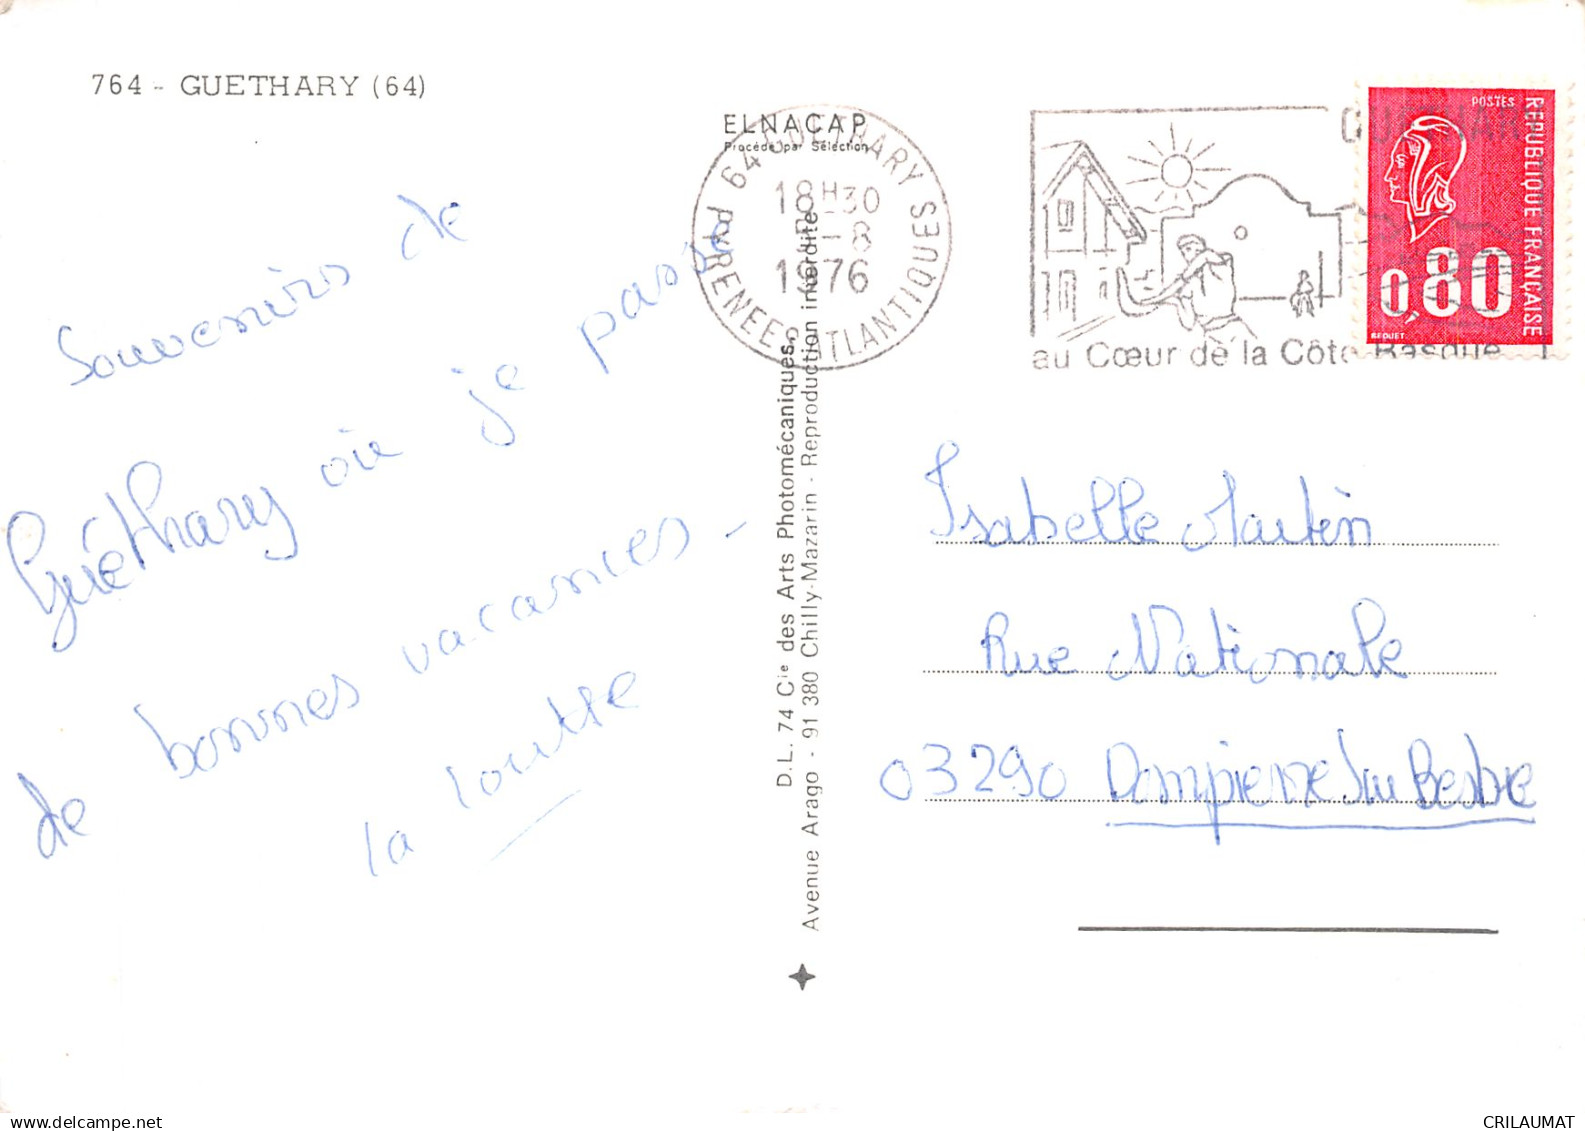 764 - GUETHARY (64)
ELNACAP
Procédé par Sélection
64 GUETHARY
18H30
-8
1976
PYRENEES ATLANTIQUES
au Cœur de la Côte Basque
POSTES
REPUBLIQUE FRANÇAISE
0,80
BEQUET
Souvenirs de
Guéthary où je passe
de bonnes vacances -
la loutte
D.L. 74 Cie des Arts Photomécaniques,
Avenue Arago - 91 380 Chilly-Mazarin - Reproduction interdite
Isabelle Martin
Rue Nationale
03290 Dompierre Sur Besbre
CRILAUMAT